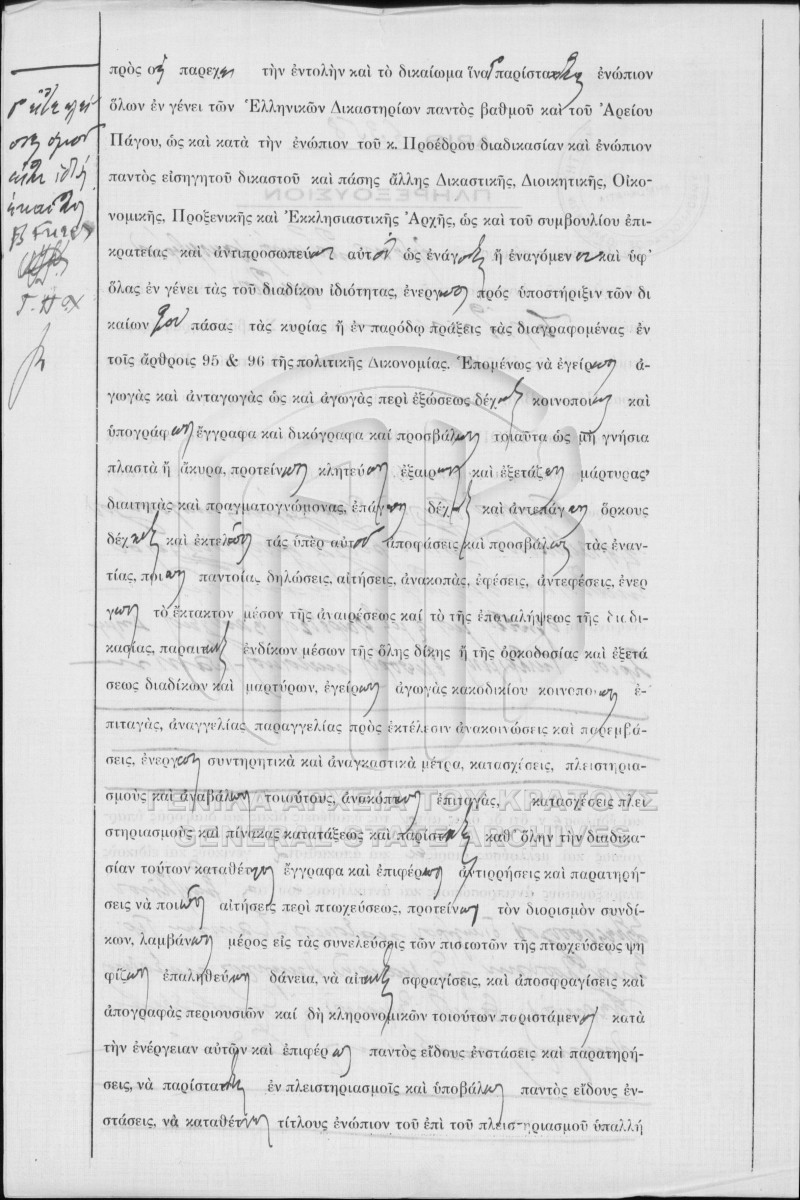 πρὸς οὓς παρέχει τὴν ἐντολὴν καὶ τὸ δικαίωμα ἵνα παρίστανται ἐνώπιον
ὅλων ἐν γένει τῶν Ἑλληνικῶν Δικαστηρίων παντὸς βαθμοῦ καὶ τοῦ Ἀρείου
Πάγου, ὡς καὶ κατὰ τὴν ἐνώπιον τοῦ κ. Προέδρου διαδικασίαν καὶ ἐνώπιον
παντὸς εἰσηγητοῦ δικαστοῦ καὶ πάσης ἄλλης Δικαστικῆς, Διοικητικῆς, Οἰκο-
νομικῆς, Προξενικῆς καὶ Ἐκκλησιαστικῆς Ἀρχῆς, ὡς καὶ τοῦ συμβουλίου ἐπι-
κρατείας καὶ ἀντιπροσωπεύωσι αὐτὸν ὡς ἐνάγοντα ἢ ἐναγόμενον καὶ ὑφ'
ὅλας ἐν γένει τὰς τοῦ διαδίκου ἰδιότητας, ἐνεργῶσι πρὸς ὑποστήριξιν τῶν δι
καίων του πάσας τὰς κυρίας ἢ ἐν παρόδῳ πράξεις τὰς διαγραφομένας ἐν
τοῖς ἄρθροις 95 & 96 τῆς πολιτικῆς Δικονομίας. Ἑπομένως νὰ ἐγείρωσι ἀ-
γωγὰς καὶ ἀνταγωγὰς ὡς καὶ ἀγωγὰς περὶ ἐξώσεως δέχωνται κοινοποιῶσι καὶ
ὑπογράφωσι ἔγγραφα καὶ δικόγραφα καὶ προσβάλωσι τοιαῦτα ὡς μὴ γνήσια
πλαστὰ ἢ ἄκυρα, προτείνωσι κλητεύωσι ἐξαιρῶσι καὶ ἐξετάζωσι μάρτυρας
διαιτητὰς καὶ πραγματογνώμονας, ἐπάγωσι δέχωνται καὶ ἀντεπάγωσι ὅρκους
δέχωνται καὶ ἐκτελῶσι τὰς ὑπὲρ αὐτοῦ ἀποφάσεις καὶ προσβάλωσι τὰς ἐναν-
τίας, ποιῶσι παντοίας δηλώσεις, αἰτήσεις, ἀνακοπὰς, ἐφέσεις, ἀντεφέσεις, ἐνερ
γῶσι τὸ ἔκτακτον μέσον τῆς ἀναιρέσεως καὶ τὸ τῆς ἐπαναλήψεως τῆς διαδι-
κασίας, παραιτῶνται ἐνδίκων μέσων τῆς ὅλης δίκης ἢ τῆς ὁρκοδοσίας καὶ ἐξετά
σεως διαδίκων καὶ μαρτύρων, ἐγείρωσι ἀγωγὰς κακοδικίου κοινοποιῶσι ἐ-
πιταγὰς, ἀναγγελίας παραγγελίας πρὸς ἐκτέλεσιν ἀνακοινώσεις καὶ παρεμβά-
σεις, ἐνεργῶσι συντηρητικὰ καὶ ἀναγκαστικὰ μέτρα, κατασχέσεις, πλειστηρια-
σμοὺς καὶ ἀναβάλωσι τοιούτους, ἀνακόπτωσι ἐπιταγὰς, κατασχέσεις πλει
στηριασμοὺς καὶ πίνακας κατατάξεως καὶ παρίστανται καθ' ὅλην τὴν διαδικα-
σίαν τούτων καταθέτωσι ἔγγραφα καὶ ἐπιφέρωσι ἀντιρρήσεις καὶ παρατηρή-
σεις νὰ ποιῶσι αἰτήσεις περὶ πτωχεύσεως, προτείνωσι τὸν διορισμὸν συνδί-
κων, λαμβάνωσι μέρος εἰς τὰς συνελεύσεις τῶν πιστωτῶν τῆς πτωχεύσεως ψη
φίζωσι ἐπαληθεύωσι δάνεια, νὰ αἰτῶνται σφραγίσεις, καὶ ἀποσφραγίσεις καὶ
ἀπογραφὰς περιουσιῶν καὶ δὴ κληρονομικῶν τοιούτων παριστάμενοι κατὰ
τὴν ἐνέργειαν αὐτῶν καὶ ἐπιφέρωσι παντὸς εἴδους ἐνστάσεις καὶ παρατηρή-
σεις, νὰ παρίστανται ἐν πλειστηριασμοῖς καὶ ὑποβάλωσι παντὸς εἴδους ἐν-
στάσεις, νὰ καταθέτωσι τίτλους ἐνώπιον τοῦ ἐπὶ τοῦ πλειστηριασμοῦ ὑπαλλή
ΓΕΝΙΚΑ ΑΡΧΕΙΑ ΤΟΥ ΚΡΑΤΟΥΣ
GENERAL STATE ARCHIVES